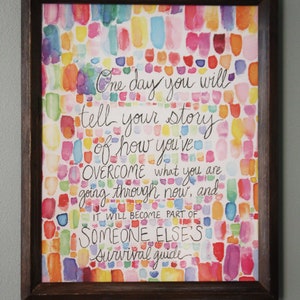 One day you will
tell your story
of how you've
OVERCOME what you are
going through now, and
IT WILL BECOME PART OF
SOMEONE ELSE'S
survival guide